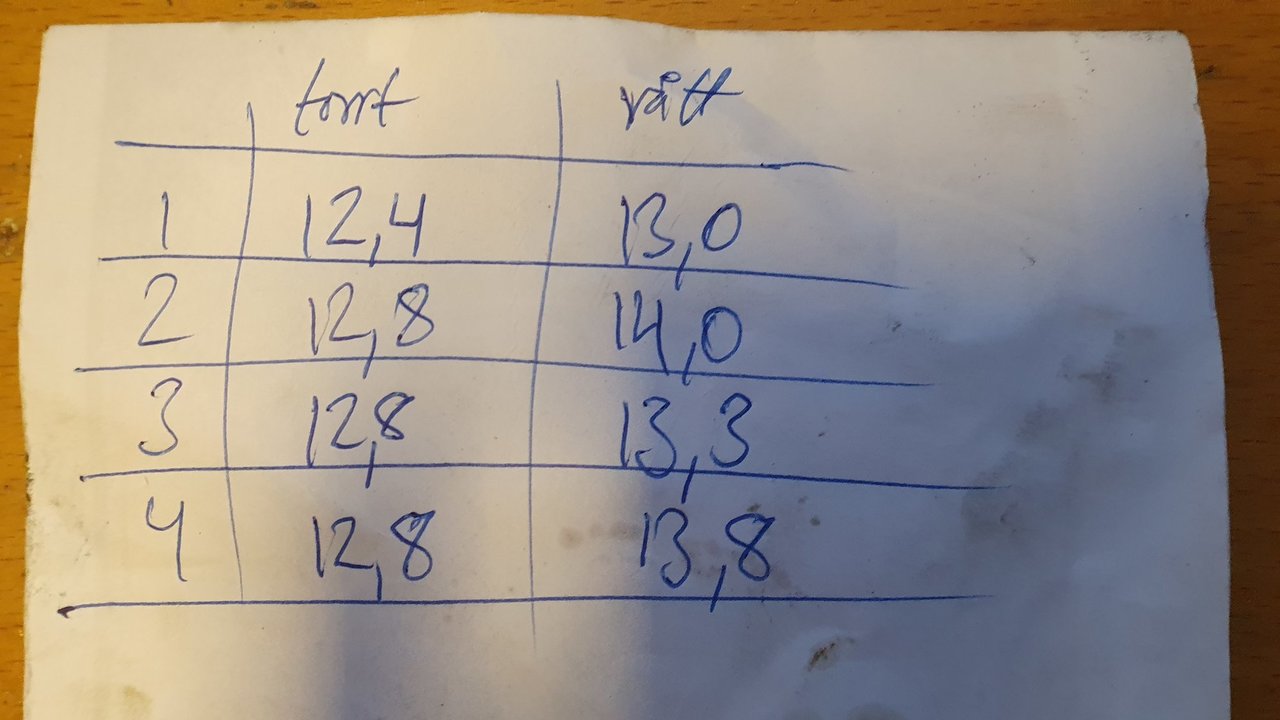 torrt rått
1 12,4 13,0
2 12,8 14,0
3 12,8 13,3
4 12,8 13,8